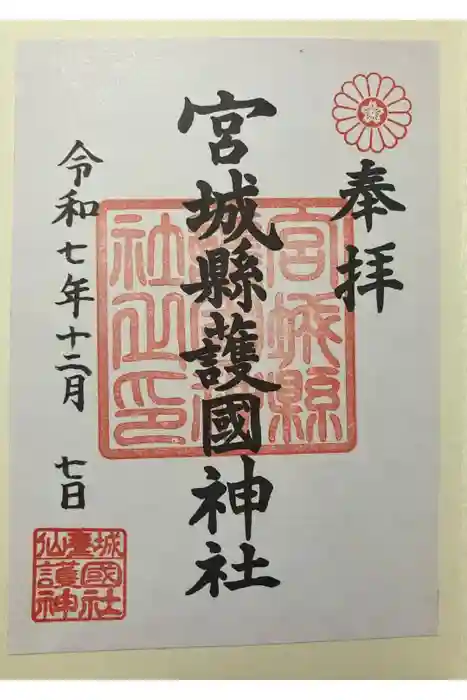 奉拝
宮城縣護國神社
令和七年十二月 七日
宮城縣
社之印
仙臺城
護國神社